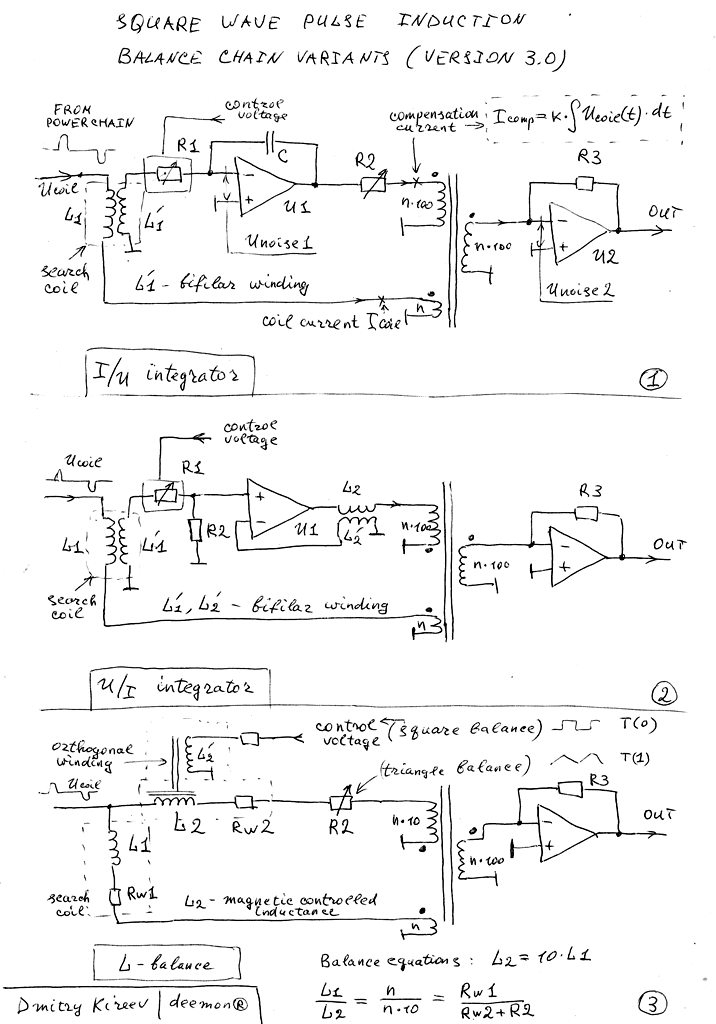 SQUARE WAVE PULSE INDUCTION
BALANCE CHAIN VARIANTS (VERSION 3.0)
FROM POWERCHAIN
control voltage
compensation current
Icomp = K·∫Ucoil(t)·dt
R1
C
R2
R3
Ucoil
L1
L1'
U1
n·100
n·100
OUT
U2
Unoise1
Unoise2
search coil
L1' - bifilar winding
n
coil current Icoil
I/U integrator
1
control voltage
Ucoil
R1
L2
R3
L1
L1'
R2
U1
L2'
n·100
n·100
OUT
search coil
L1', L2' - bifilar winding
n
U/I integrator
2
control voltage
(square balance)
T(0)
orthogonal winding
L2'
(triangle balance)
T(1)
Ucoil
R3
L2
Rw2
R2
n·10
OUT
L1
n·100
search coil
Rw1
L2 - magnetic controlled inductance
n
L - balance
Balance equations: L2 = 10·L1
L1/L2 = n/n·10 = Rw1/Rw2+R2
3
Dmitry Kireev | deemon®